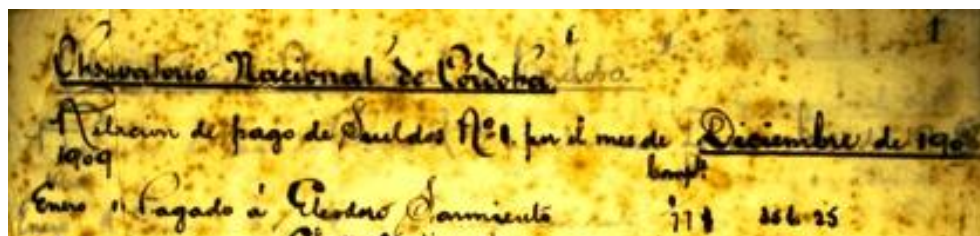 1
Observatorio Nacional de Córdoba
Relacion de pago de Sueldos Nº 1. por el mes de Diciembre de 190
1909
Enero " Pagado á Eleodoro Sarmiento